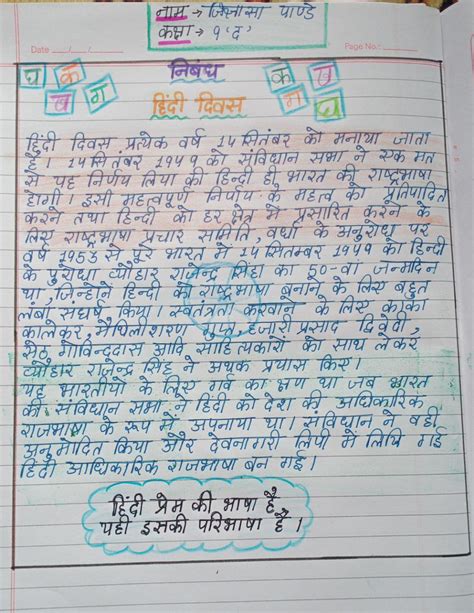 नाम → जिज्ञासा पाण्डे
कक्षा → 9 'द'
Date
Page No.:
घ क ख ग
निबंध
क ख ग घ
हिंदी दिवस
हिंदी दिवस प्रत्येक वर्ष 14 सितंबर को मनाया जाता
है। 14 सितंबर 1949 को संविधान सभा ने एक मत
से यह निर्णय लिया की हिन्दी ही भारत की राष्ट्रभाषा
होगी। इसी महत्वपूर्ण निर्णय के महत्व को प्रतिपादित
करने तथा हिन्दी को हर क्षेत्र में प्रसारित करने के
लिए राष्ट्रभाषा प्रचार समिति, वर्धा के अनुरोध पर
वर्ष 1953 से पूरे भारत में 14 सितम्बर 1949 को हिन्दी
के पुरोधा व्यौहार राजेन्द्र सिंहा का 50-वा जन्मदिन
था, जिन्होंने हिन्दी को राष्ट्रभाषा बनाने के लिए बहुत
लंबा संघर्ष किया। स्वतंत्रता करवाने के लिए काका
कालेकर, मैथिलीशरण गुप्त, हजारी प्रसाद द्विवेदी,
सेठ गोविन्ददास आदि साहित्यकारों को साथ लेकर
व्यौहार राजेन्द्र सिंह ने अथक प्रयास किए।
यह भारतीयो के लिए गर्व का क्षण था जब भारत
की संविधान सभा ने हिंदी को देश की आधिकारिक
राजभाषा के रूप में अपनाया था। संविधान ने वही
अनुमोदित किया और देवनागरी लिपी में लिखि गई
हिंदी आधिकारिक राजभाषा बन गई।
हिंदी प्रेम की भाषा है,
यही इसकी परिभाषा है।